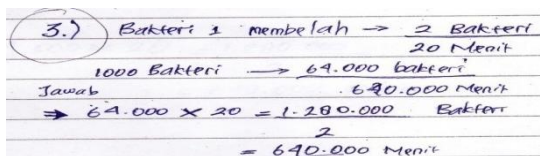 3.) Bakteri 1 membelah → 2 Bakteri
20 Menit
1000 Bakteri → 64.000 bakteri
Jawab 640.000 Menit
⇒ 64.000 × 20 = 1.280.000 Bakteri
2
= 640.000 Menit